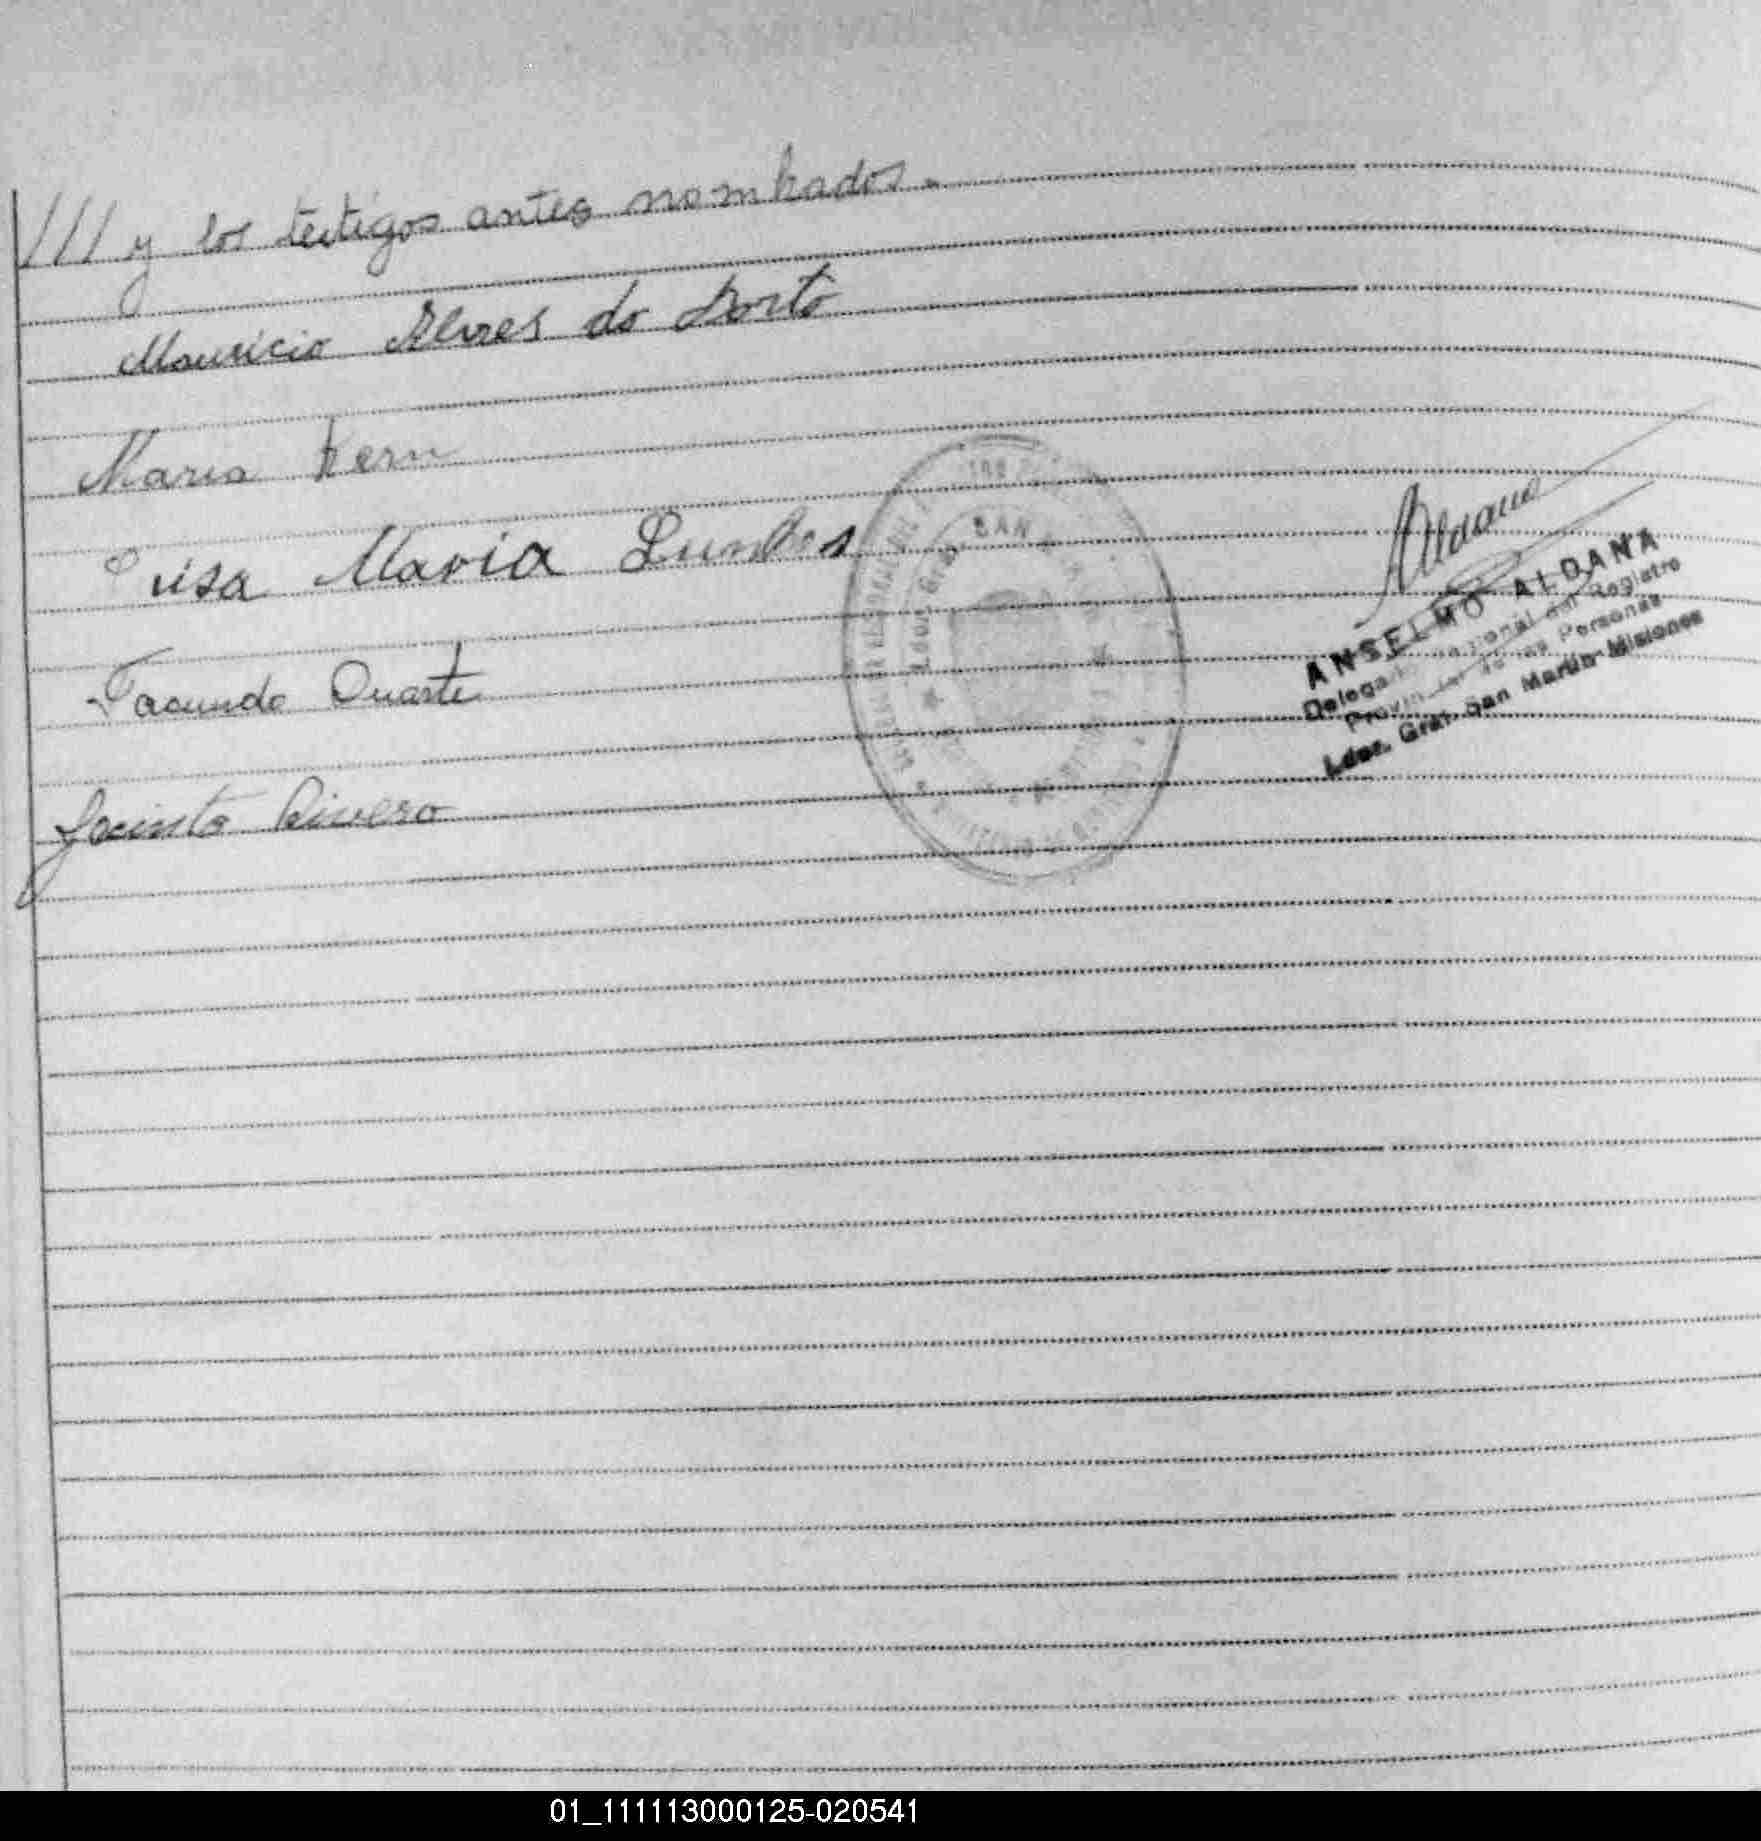 /// y los testigos antes nombrados.
Mauricio Alves do Porto
Maria Kern
Luisa Maria
Facundo Duarte
Jacinto Rivero
SAN
Aldana
ANSELMO ALDANA
Delegado del Registro
Provincial de las Personas
Ldor. Gral. San Martin-Misiones
01_111113000125-020541